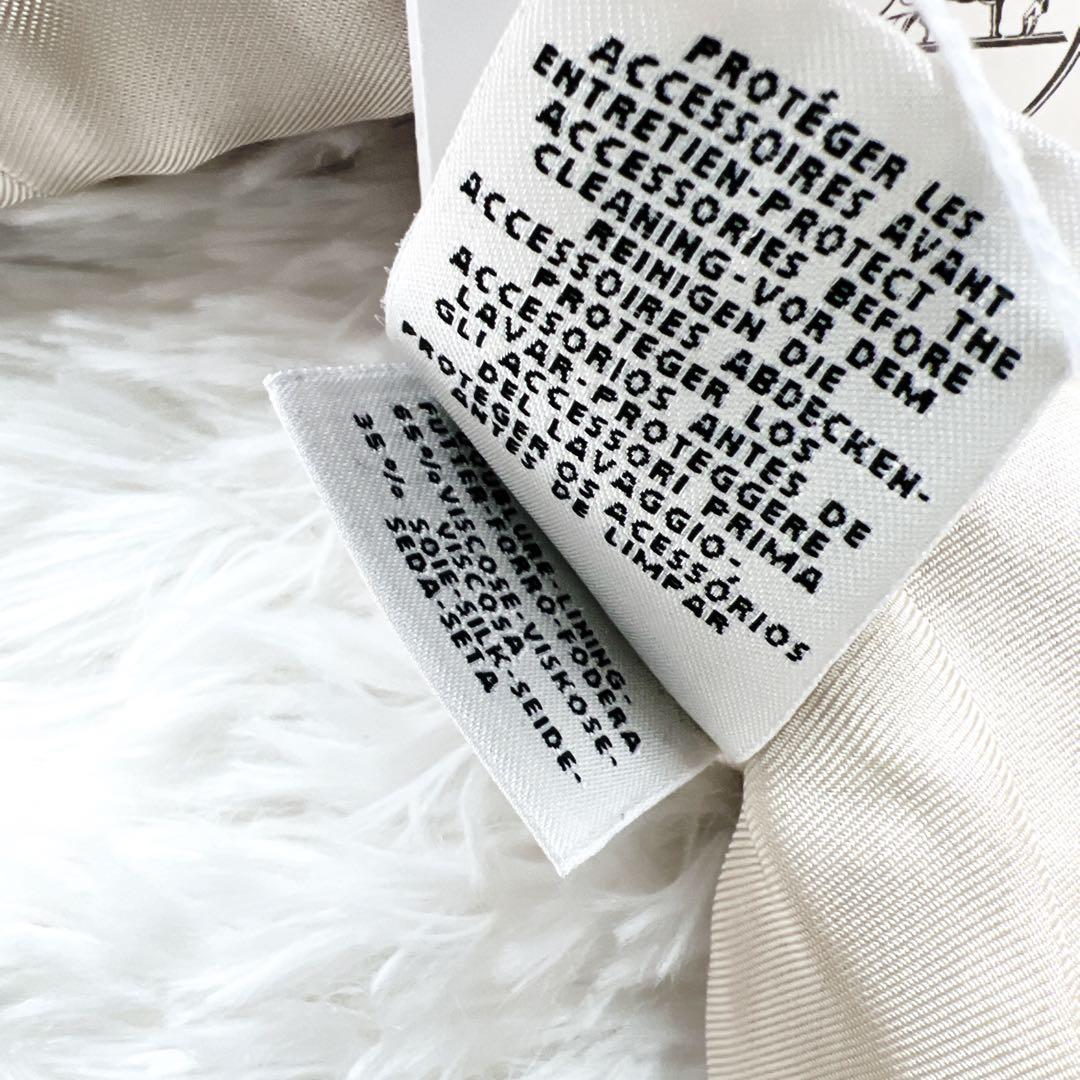 PROTÉGER LES
ACCESSOIRES AVANT
ENTRETIEN-PROTECT THE
ACCESSORIES BEFORE
CLEANING-VOR DEM
REINIGEN DIE
ACCESSOIRES ABDECKEN-
PROTEGER LOS
ACCESORIOS ANTES DE
LAVAR-PROTEGGERE
GLI ACCESSORI PRIMA
DEL LAVAGGIO-
PROTEGER OS ACESSÓRIOS
ANTES DE LIMPAR
LINING-
FUTTER-FORRO-FODERA
65% VISCOSE-VISKOSE-
VISCOSA
35% SOIE-SILK-SEIDE-
SEDA-SETA